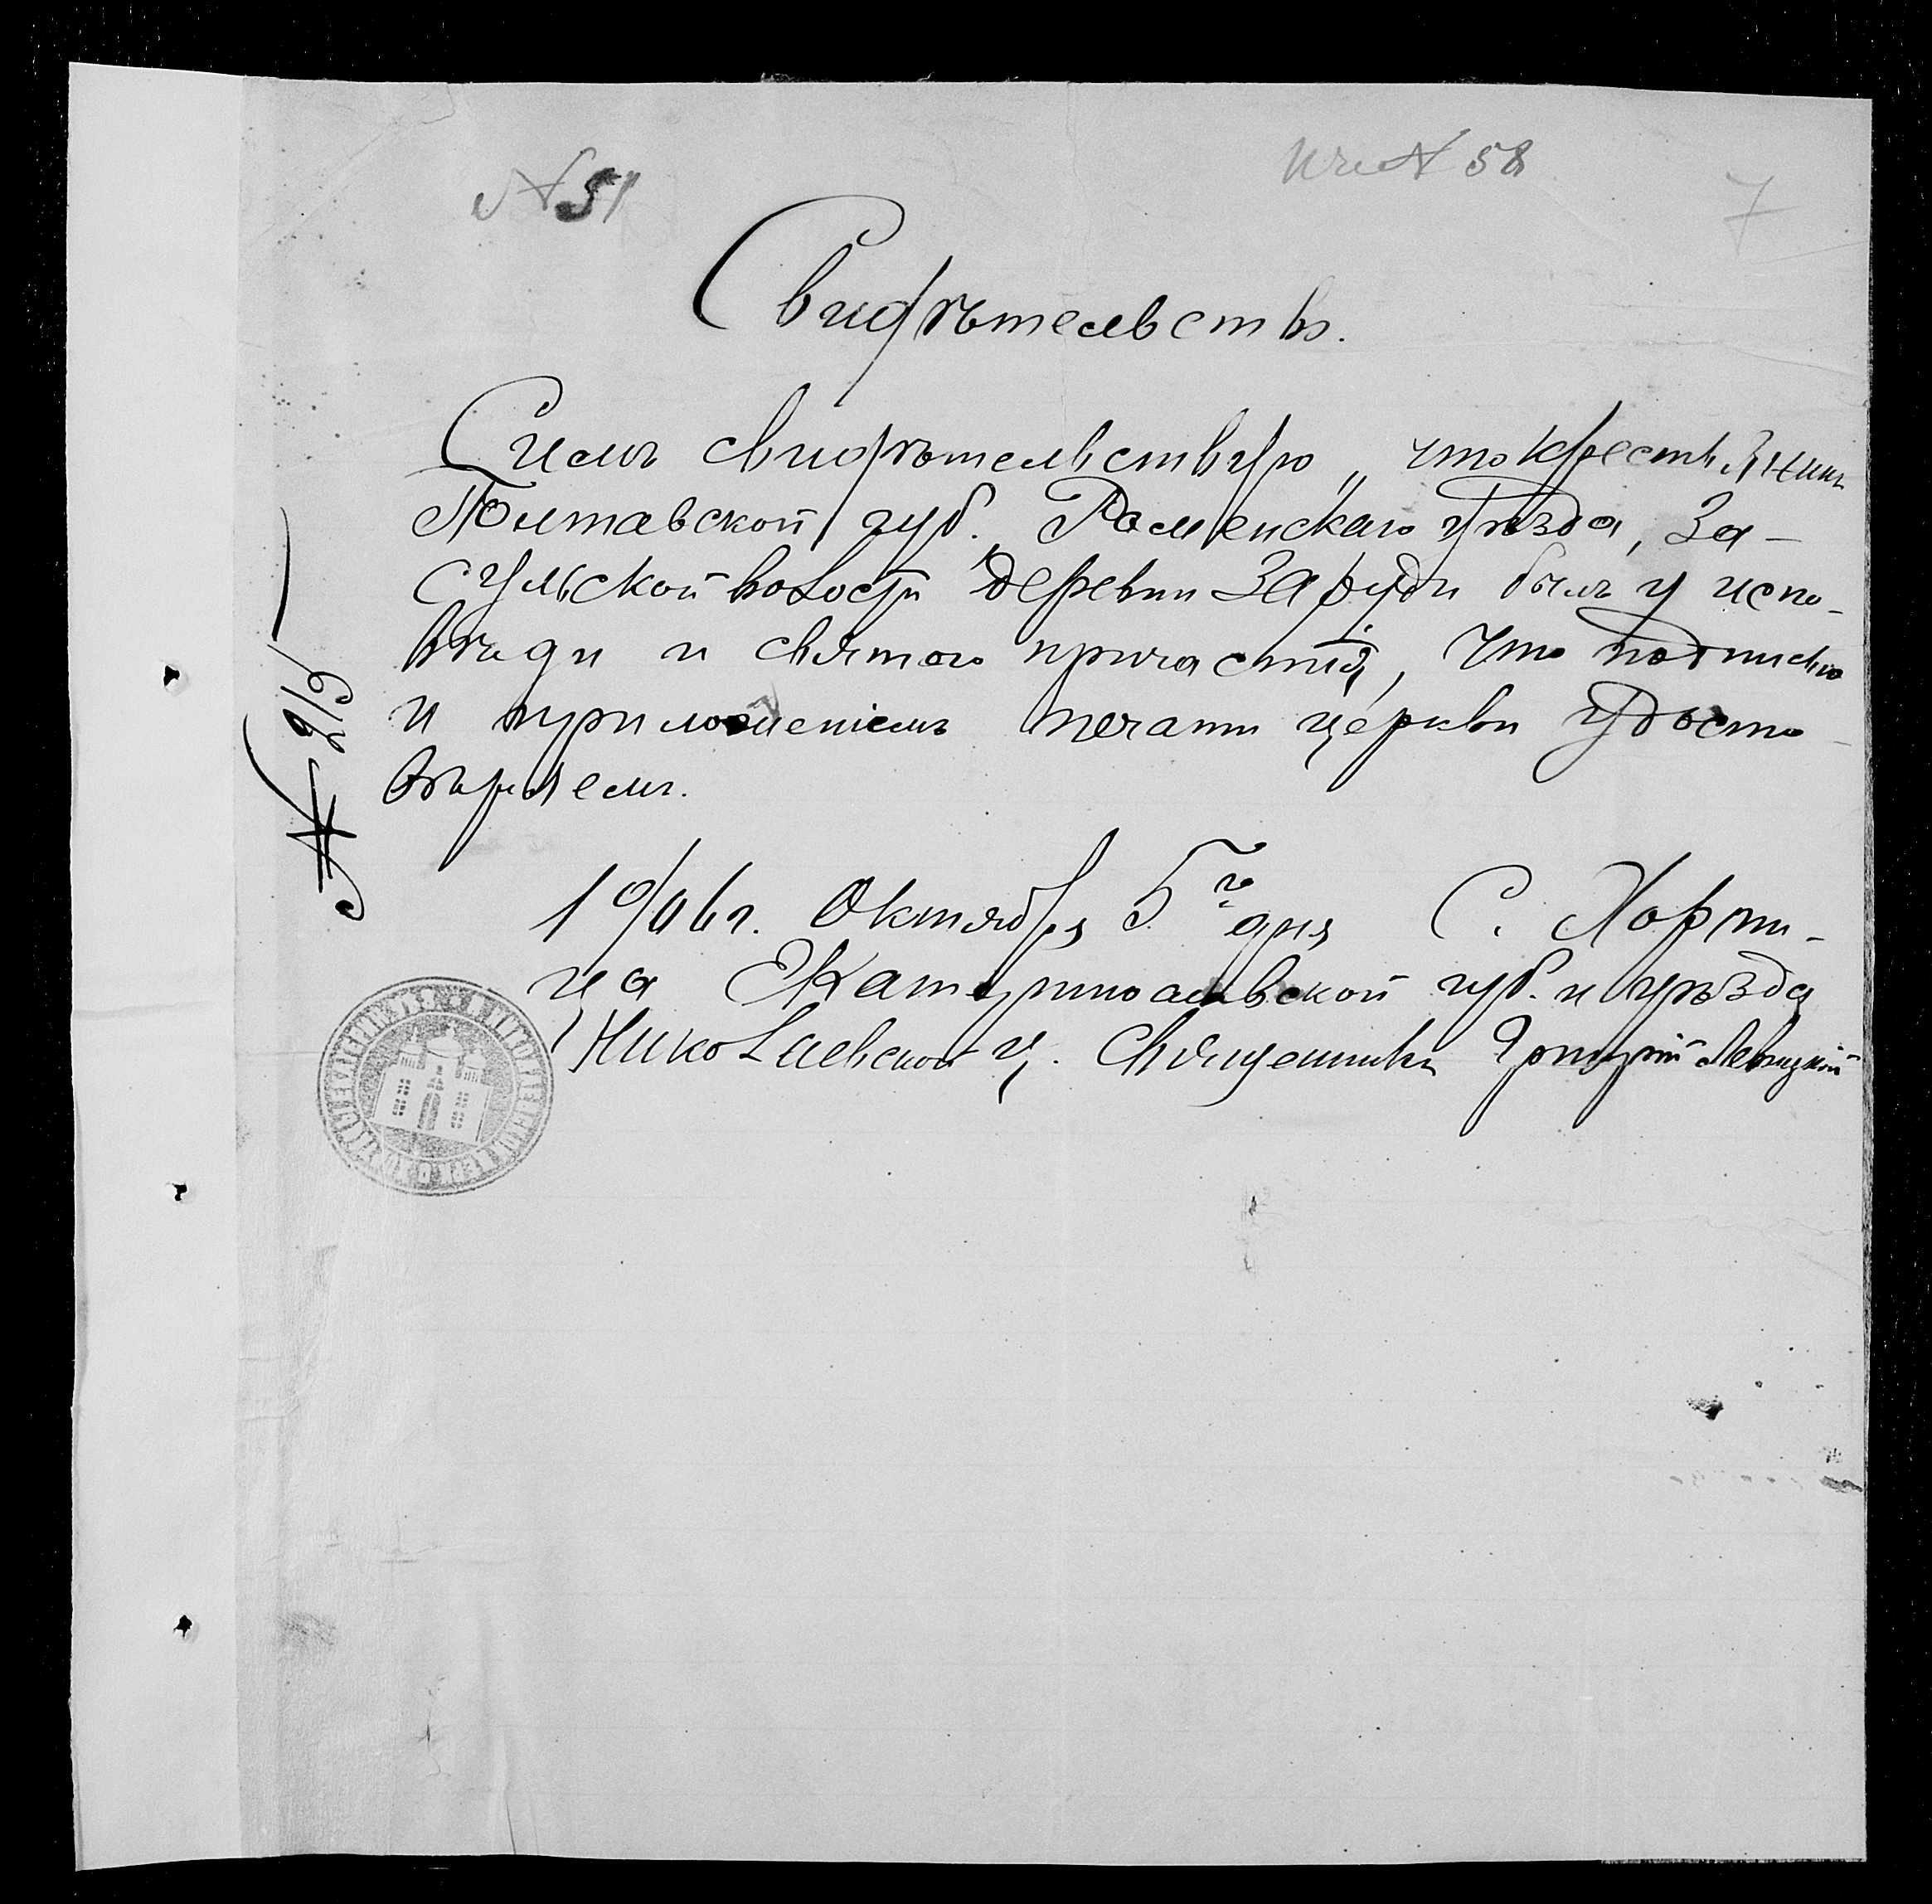 № 51
№ 58
7
Свидѣтельство.
Симъ свидѣтельствую, что крестьянинъ
Полтавской губ. Роменскаго уѣзда, За-
сульской волости деревни Заруди былъ у испо-
вѣди и святого причастія, что подписью
и приложеніемъ печати церкви удосто-
вѣряемъ.
1906 г. Октября 5го дня С. Хорти-
ца Екатеринославской губ. и уѣзда
Николаевской ц. Священникъ Григорій Левицкій
№ 215